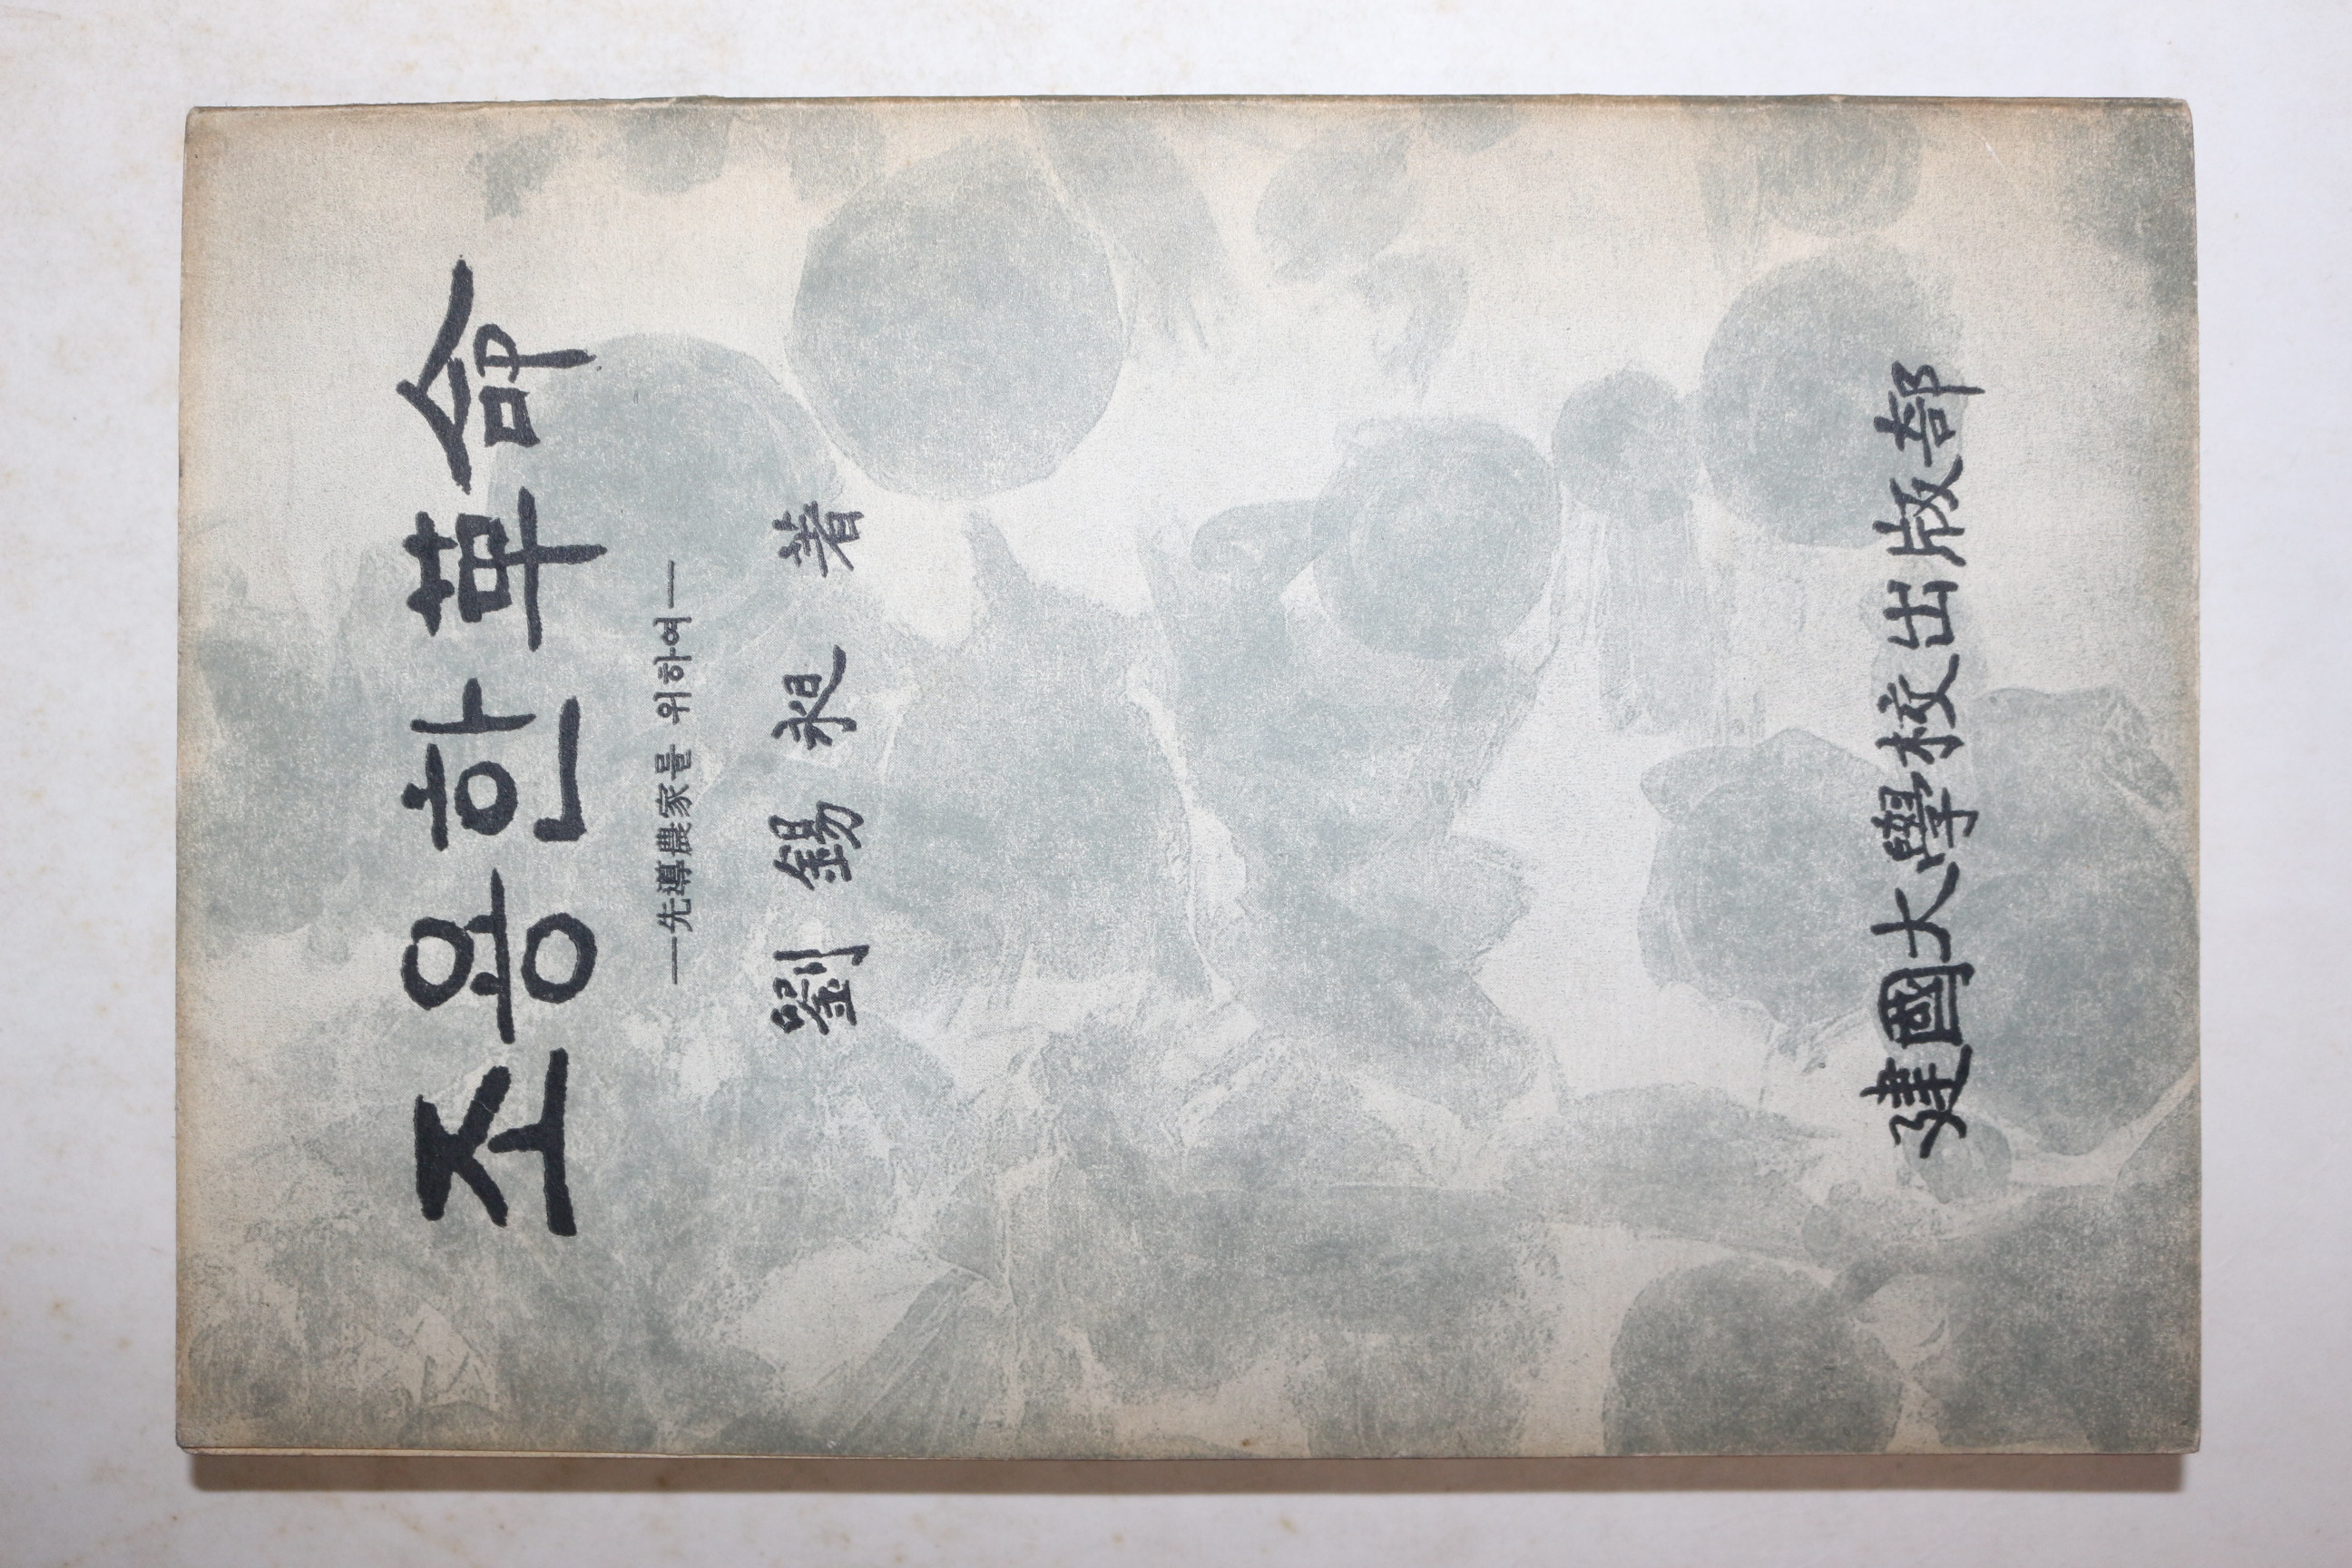 조용한 革命
—先導農家를 위하여—
劉錫昶 著
建國大學校出版部